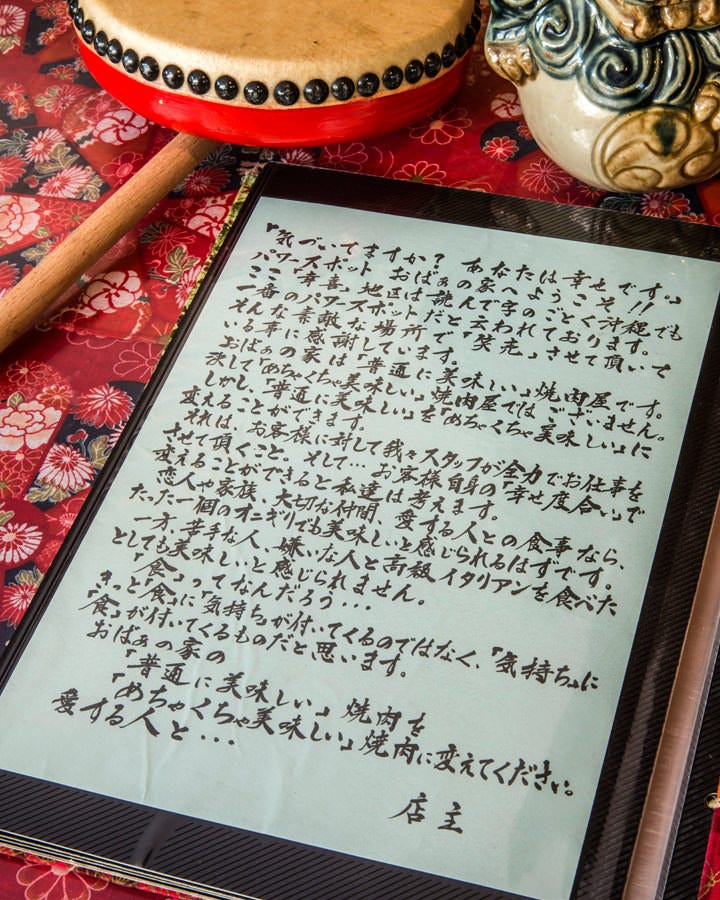 「気づいてますか? あなたは幸せです。」
パワースポット おばぁの家へようこそ!!
ここ「幸喜」地区は読んで字のごとく沖縄でも
一番のパワースポットだと云われております。
そんな素敵な場所で「笑売」させて頂いて
いる事に感謝しています。
おばぁの家は「普通に美味しい」焼肉屋です。
決して「めちゃくちゃ美味しい」焼肉屋ではございません。
しかし、「普通に美味しい」を「めちゃくちゃ美味しい」に
変えることができます。
それは、お客様に対して我々スタッフが全力でお仕事を
させて頂くこと、そして…お客様自身の「幸せ度合い」で
変えることができると私達は考えます。
恋人や家族、大切な仲間、愛する人との食事なら、
たった一個のオニギリでも美味しいと感じられるはずです。
一方、苦手な人、嫌いな人と高級イタリアンを食べた
としても美味しいと感じられません。
「食」ってなんだろう…
きっと「食」に「気持ち」が付いてくるのではなく、「気持ち」に
「食」が付いてくるものだと思います。
おばぁの家の
「普通に美味しい」焼肉を
「めちゃくちゃ美味しい」焼肉に変えてください。
愛する人と…
店主